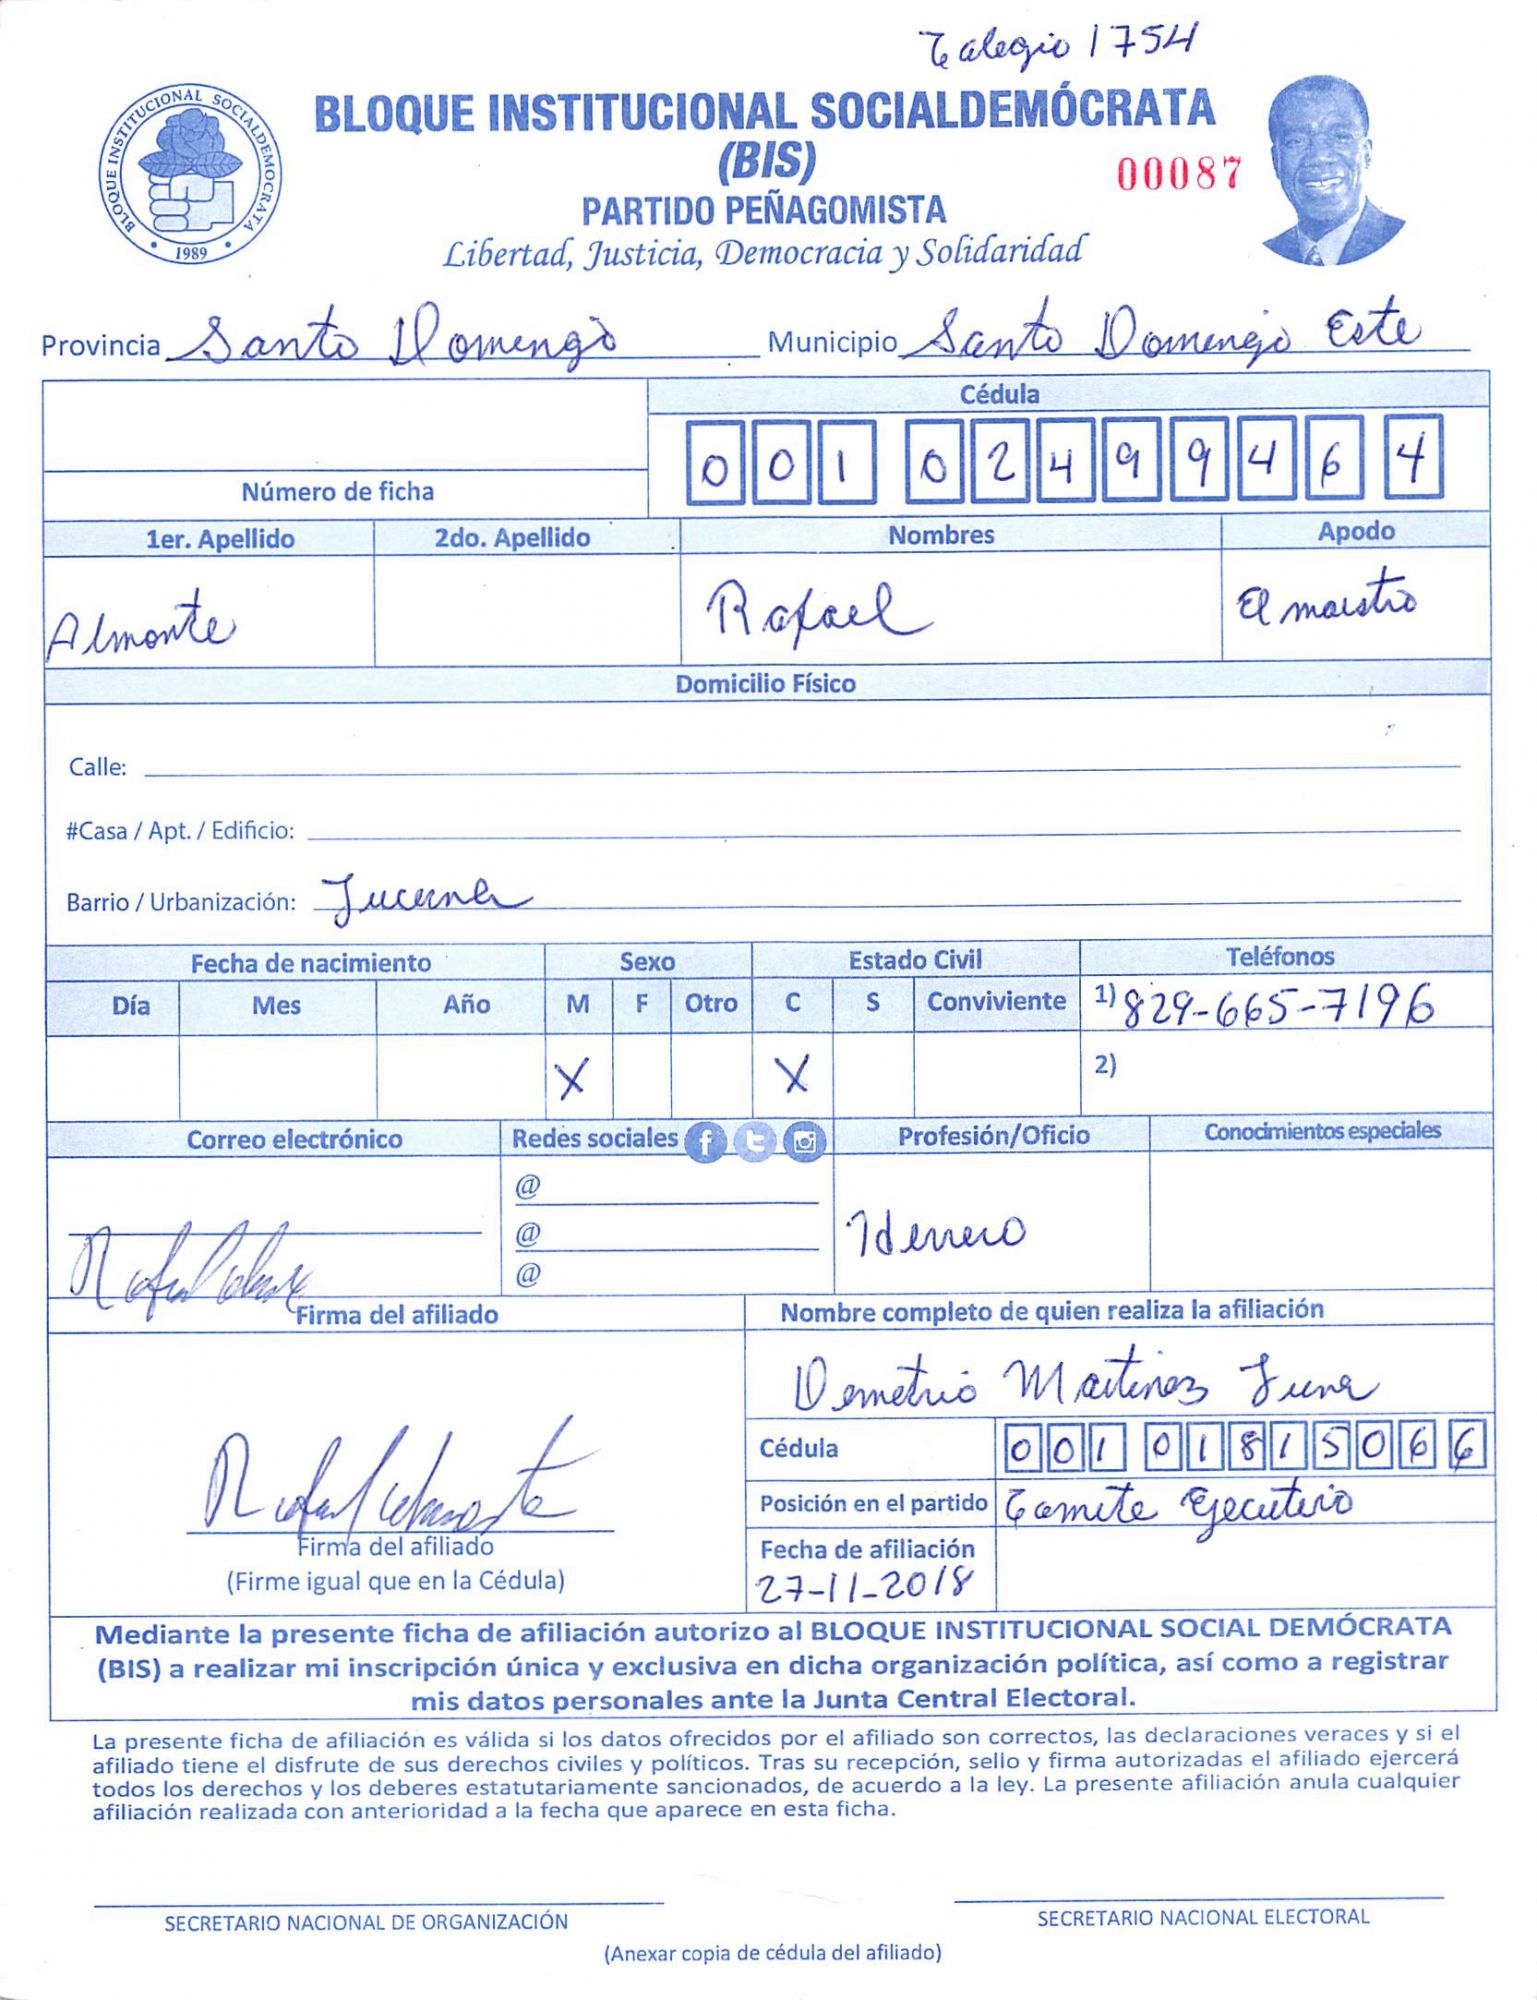 Colegio 1754
BLOQUE INSTITUCIONAL SOCIALDEMÓCRATA
BLOQUE INSTITUCIONAL SOCIALDEMOCRATA
1989
(BIS)
00087
PARTIDO PEÑAGOMISTA
Libertad, Justicia, Democracia y Solidaridad
Provincia Santo Domingo Municipio Santo Domingo Este
Cédula
001 0249946 4
Número de ficha
1er. Apellido 2do. Apellido Nombres Apodo
Almonte Rafael El maestro
Domicilio Físico
Calle:
#Casa / Apt. / Edificio:
Barrio / Urbanización: Lucerna
Fecha de nacimiento Sexo Estado Civil Teléfonos
Día Mes Año M F Otro C S Conviviente 1) 829-665-7196
X X 2)
Correo electrónico Redes sociales Profesión/Oficio Conocimientos especiales
@
@
@
Herrero
Rafael Almonte
Firma del afiliado Nombre completo de quien realiza la afiliación
Demetrio Martinez Luna
Cédula 001 0181506 6
Posición en el partido Comite Ejecutivo
Rafael Almonte
Firma del afiliado
(Firme igual que en la Cédula)
Fecha de afiliación
27-11-2018
Mediante la presente ficha de afiliación autorizo al BLOQUE INSTITUCIONAL SOCIAL DEMÓCRATA
(BIS) a realizar mi inscripción única y exclusiva en dicha organización política, así como a registrar
mis datos personales ante la Junta Central Electoral.
La presente ficha de afiliación es válida si los datos ofrecidos por el afiliado son correctos, las declaraciones veraces y si el
afiliado tiene el disfrute de sus derechos civiles y políticos. Tras su recepción, sello y firma autorizadas el afiliado ejercerá
todos los derechos y los deberes estatutariamente sancionados, de acuerdo a la ley. La presente afiliación anula cualquier
afiliación realizada con anterioridad a la fecha que aparece en esta ficha.
SECRETARIO NACIONAL DE ORGANIZACIÓN SECRETARIO NACIONAL ELECTORAL
(Anexar copia de cédula del afiliado)